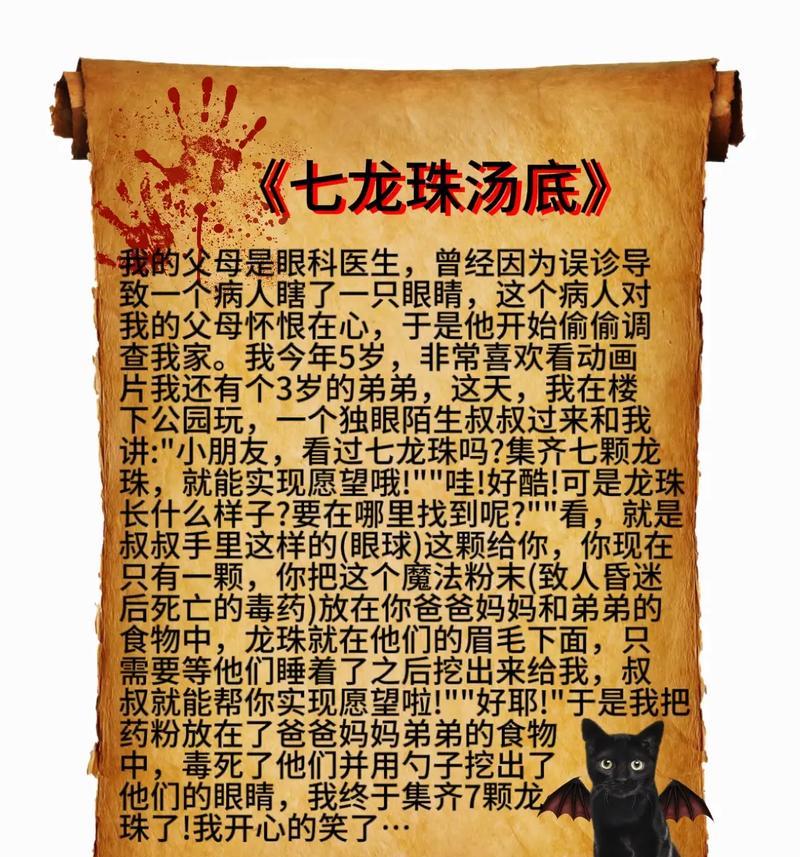 《七龙珠汤底》
我的父母是眼科医生，曾经因为误诊导
致一个病人瞎了一只眼睛，这个病人对
我的父母怀恨在心，于是他开始偷偷调
查我家。我今年5岁，非常喜欢看动画
片我还有个3岁的弟弟，这天，我在楼
下公园玩，一个独眼陌生叔叔过来和我
讲:"小朋友，看过七龙珠吗?集齐七颗龙
珠，就能实现愿望哦!""哇!好酷!可是龙珠
长什么样子?要在哪里找到呢?""看，就是
叔叔手里这样的(眼球)这颗给你，你现在
只有一颗，你把这个魔法粉末(致人昏迷
后死亡的毒药)放在你爸爸妈妈和弟弟的
食物中，龙珠就在他们的眉毛下面，只
需要等他们睡着了之后挖出来给我，叔
叔就能帮你实现愿望啦!""好耶!"于是我把
药粉放在了爸爸妈妈弟弟的食物
中，毒死了他们并用勺子挖出了
他们的眼睛，我终于集齐7颗龙
珠了!我开心的笑了…